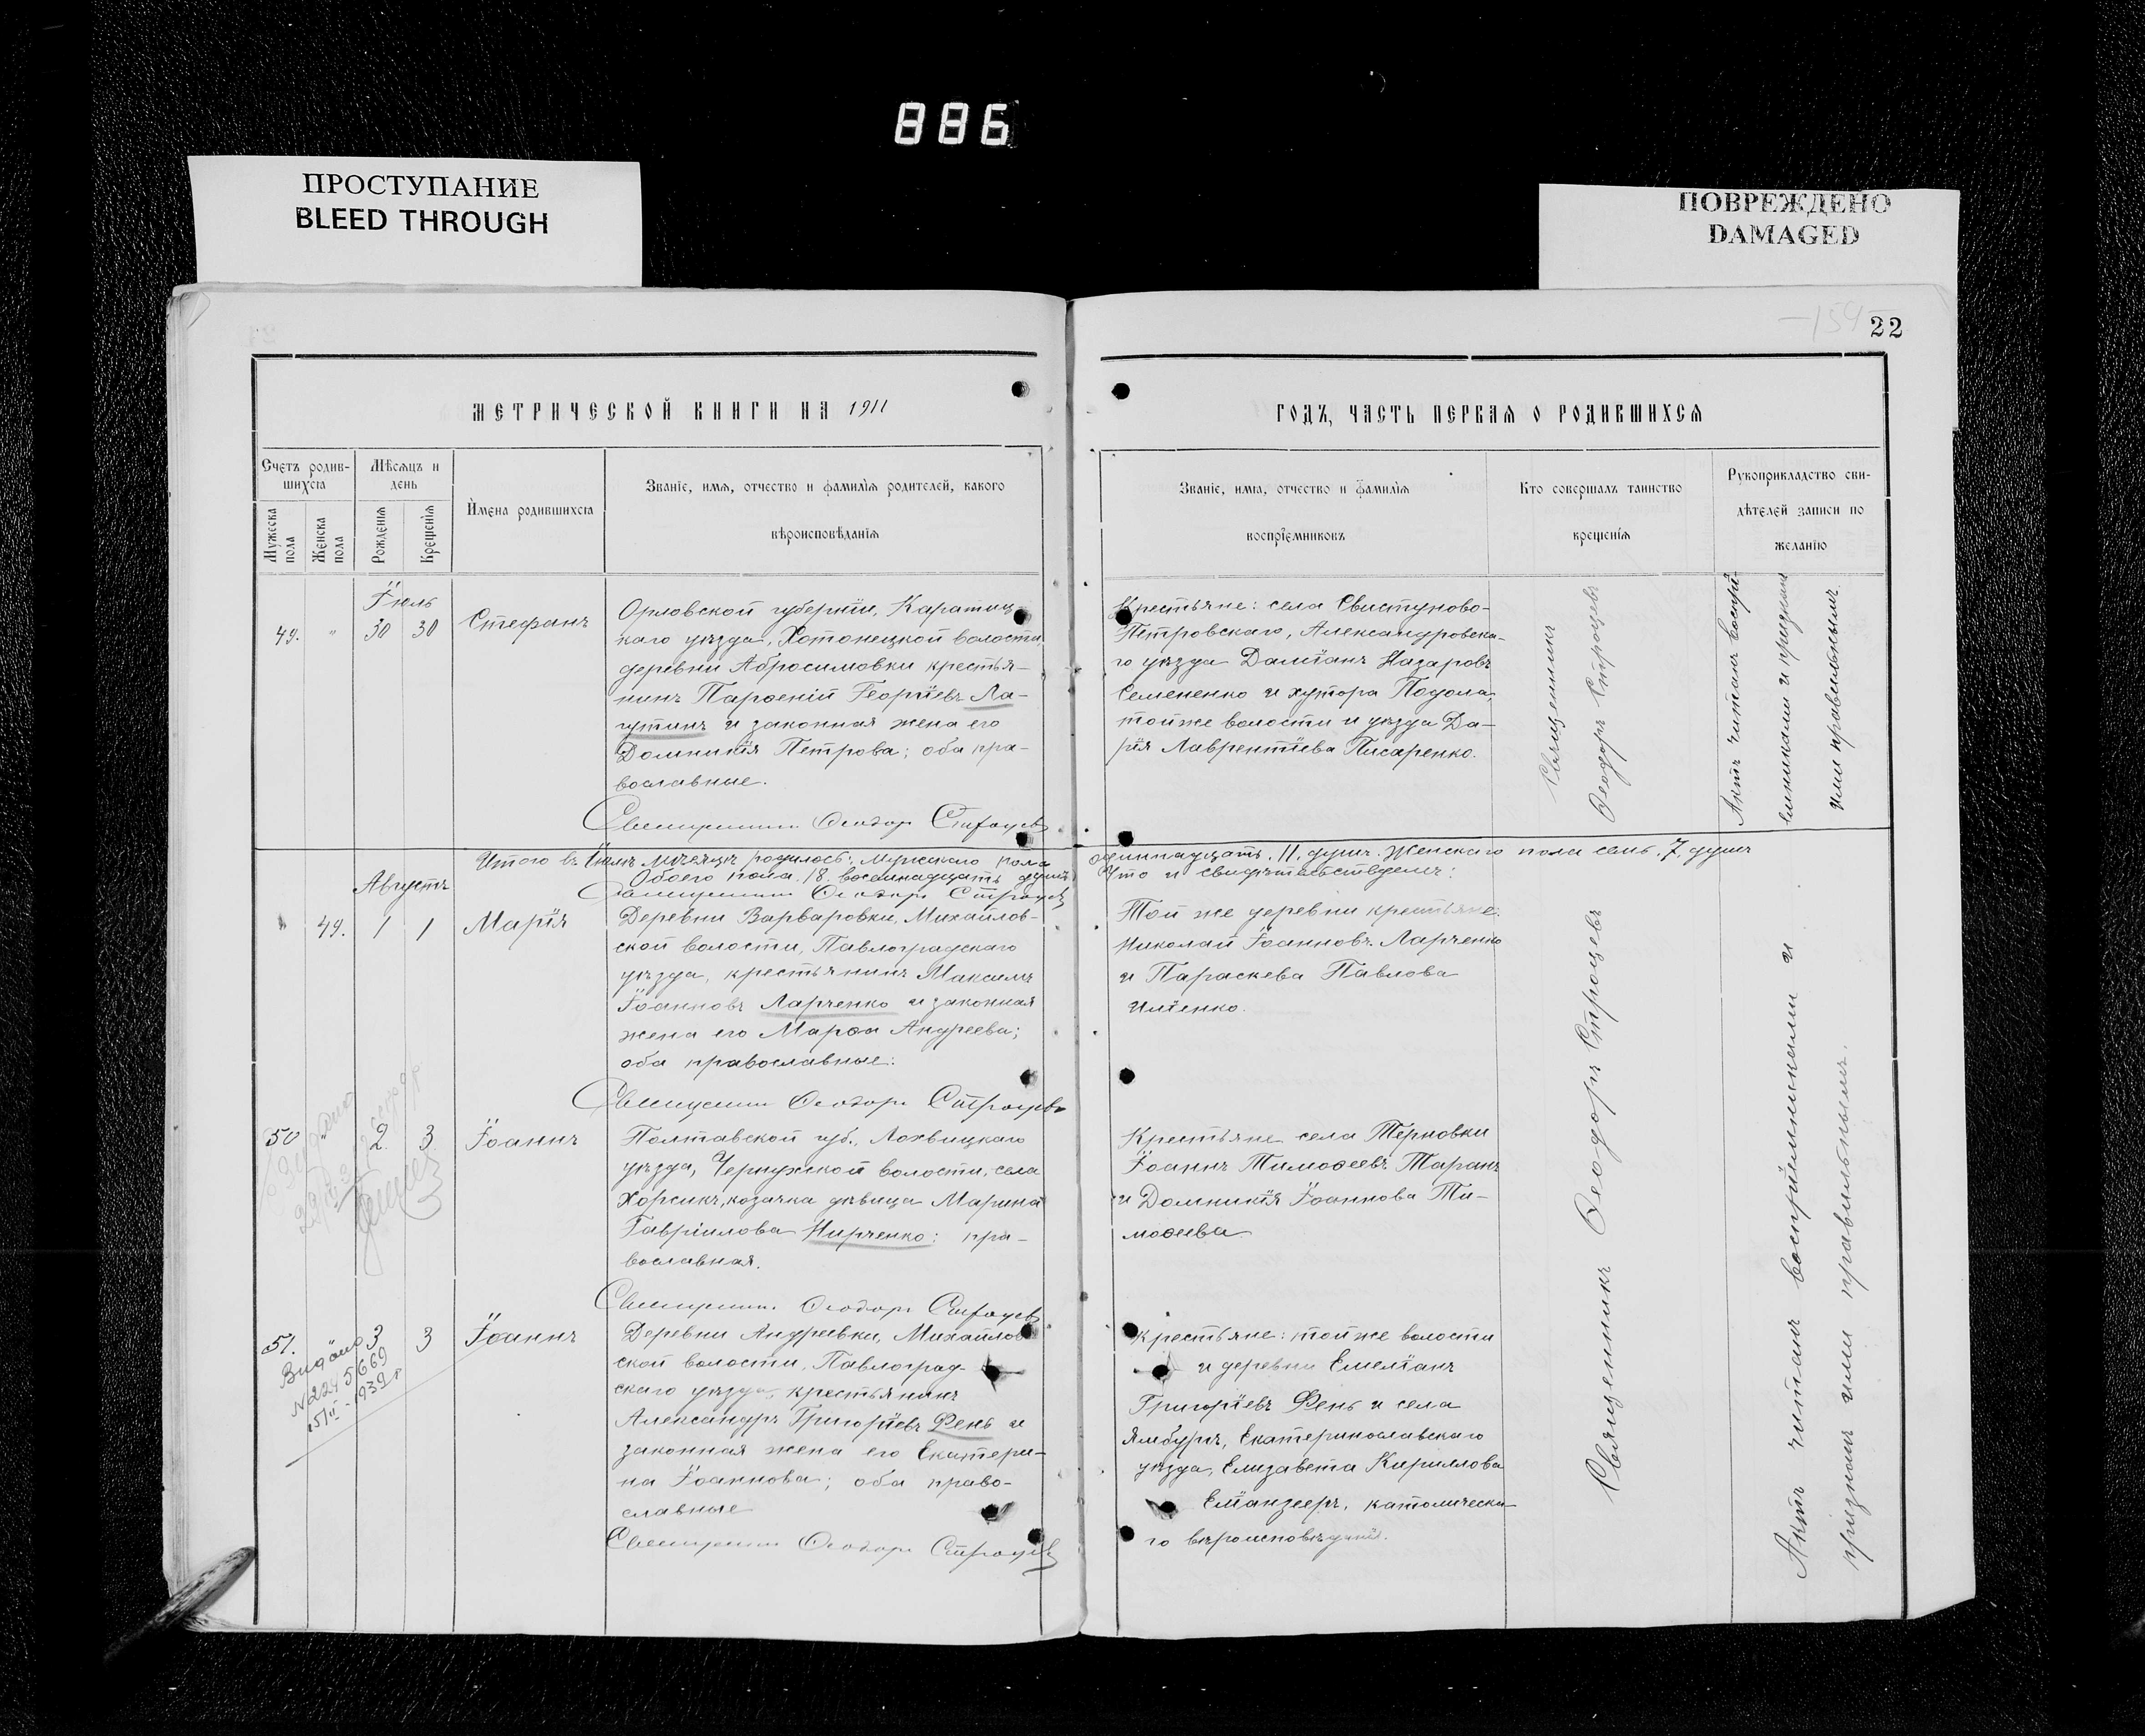 886
ПРОСТУПАНИЕ
BLEED THROUGH
ПОВРЕЖДЕНО
DAMAGED
22
МЕТРИЧЕСКОЙ КНИГИ НА 1911
ГОДЪ, ЧАСТЬ ПЕРВАЯ О РОДИВШИХСЯ
Счетъ родив-
шихся
Мѣсяцъ и
день
Мужеска
пола
Женска
пола
Рожденія
Крещенія
Имена родившихся
Званіе, имя, отчество и фамилія родителей, какого
вѣроисповѣданія
Званіе, имя, отчество и фамилія
воспріемниковъ
Кто совершалъ таинство
крещенія
Рукоприкладство сви-
дѣтелей записи по
желанію
Іюль
49. " 30 30 Стефанъ
Орловской губерніи, Карачев-
каго уѣзда, Хотонецкой волости,
деревни Абросимовки крестья-
нинъ Парѳеній Георгіевъ Ла-
гутинъ и законная жена его
Домникія Петрова; оба пра-
вославные.
Священникъ Ѳеодоръ Строцевъ
Крестьяне: села Свистуново-
Петровскаго, Александровска-
го уѣзда Даміанъ Назаровъ
Семененко и хутора Подола,
той же волости и уѣзда Да-
рія Лаврентіева Писаренко.
Священникъ
Ѳеодоръ Строцевъ
Актъ читанъ воспрі-
емниками и признанъ
ими правильнымъ.
Итого въ Іюлѣ мѣсяцѣ родилось: Мужскаго пола одиннадцать. 11. душъ. Женскаго пола семь. 7. душъ
Обоего пола. 18. восемнадцать душъ. Что и свидѣтельствуемъ:
Священникъ Ѳеодоръ Строцевъ
Августъ
" 49. 1 1 Марія
Деревни Варваровки, Михайлов-
ской волости, Павлоградскаго
уѣзда, крестьянинъ Максимъ
Іоанновъ Ларченко и законная
жена его Марѳа Андреева;
оба православные.
Священникъ Ѳеодоръ Строцевъ
Той же деревни крестьяне.
Николай Іоанновъ Ларченко
и Параскева Павлова
Иліенко.
50 " 2. 3. Іоаннъ
Полтавской губ., Лохвицкаго
уѣзда, Чернухской волости, села
Хорсикъ, козачка дѣвица Марина
Гавріилова Нирченко: пра-
вославная.
Священникъ Ѳеодоръ Строцевъ
Крестьяне села Терновки
Іоаннъ Тимоѳеевъ Таранъ
и Домникія Іоаннова Ти-
моѳеева
51. 3 3 Іоаннъ
Видано
N2245669
15/II-1939г
Деревни Андреевки, Михайлов-
ской волости, Павлоград-
скаго уѣзда, крестьянинъ
Александръ Григоріевъ Фень и
законная жена его Екатери-
на Іоаннова; оба право-
славные
Священникъ Ѳеодоръ Строцевъ
Крестьяне: той же волости
и деревни Емеліанъ
Григоріевъ Фень и села
Ямбургъ, Екатеринославскаго
уѣзда, Елизавета Кириллова
католическа-
го вѣроисповѣданія.
Священникъ Ѳеодоръ Строцевъ
Актъ читанъ воспріемниками и
признанъ ими правильнымъ.